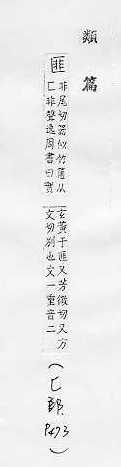 類篇
匪
非尾切器似竹筐从
匚非聲逸周書曰實
玄黃于匪又芳微切又方
文切別也文一重音二
(匚部 P473)